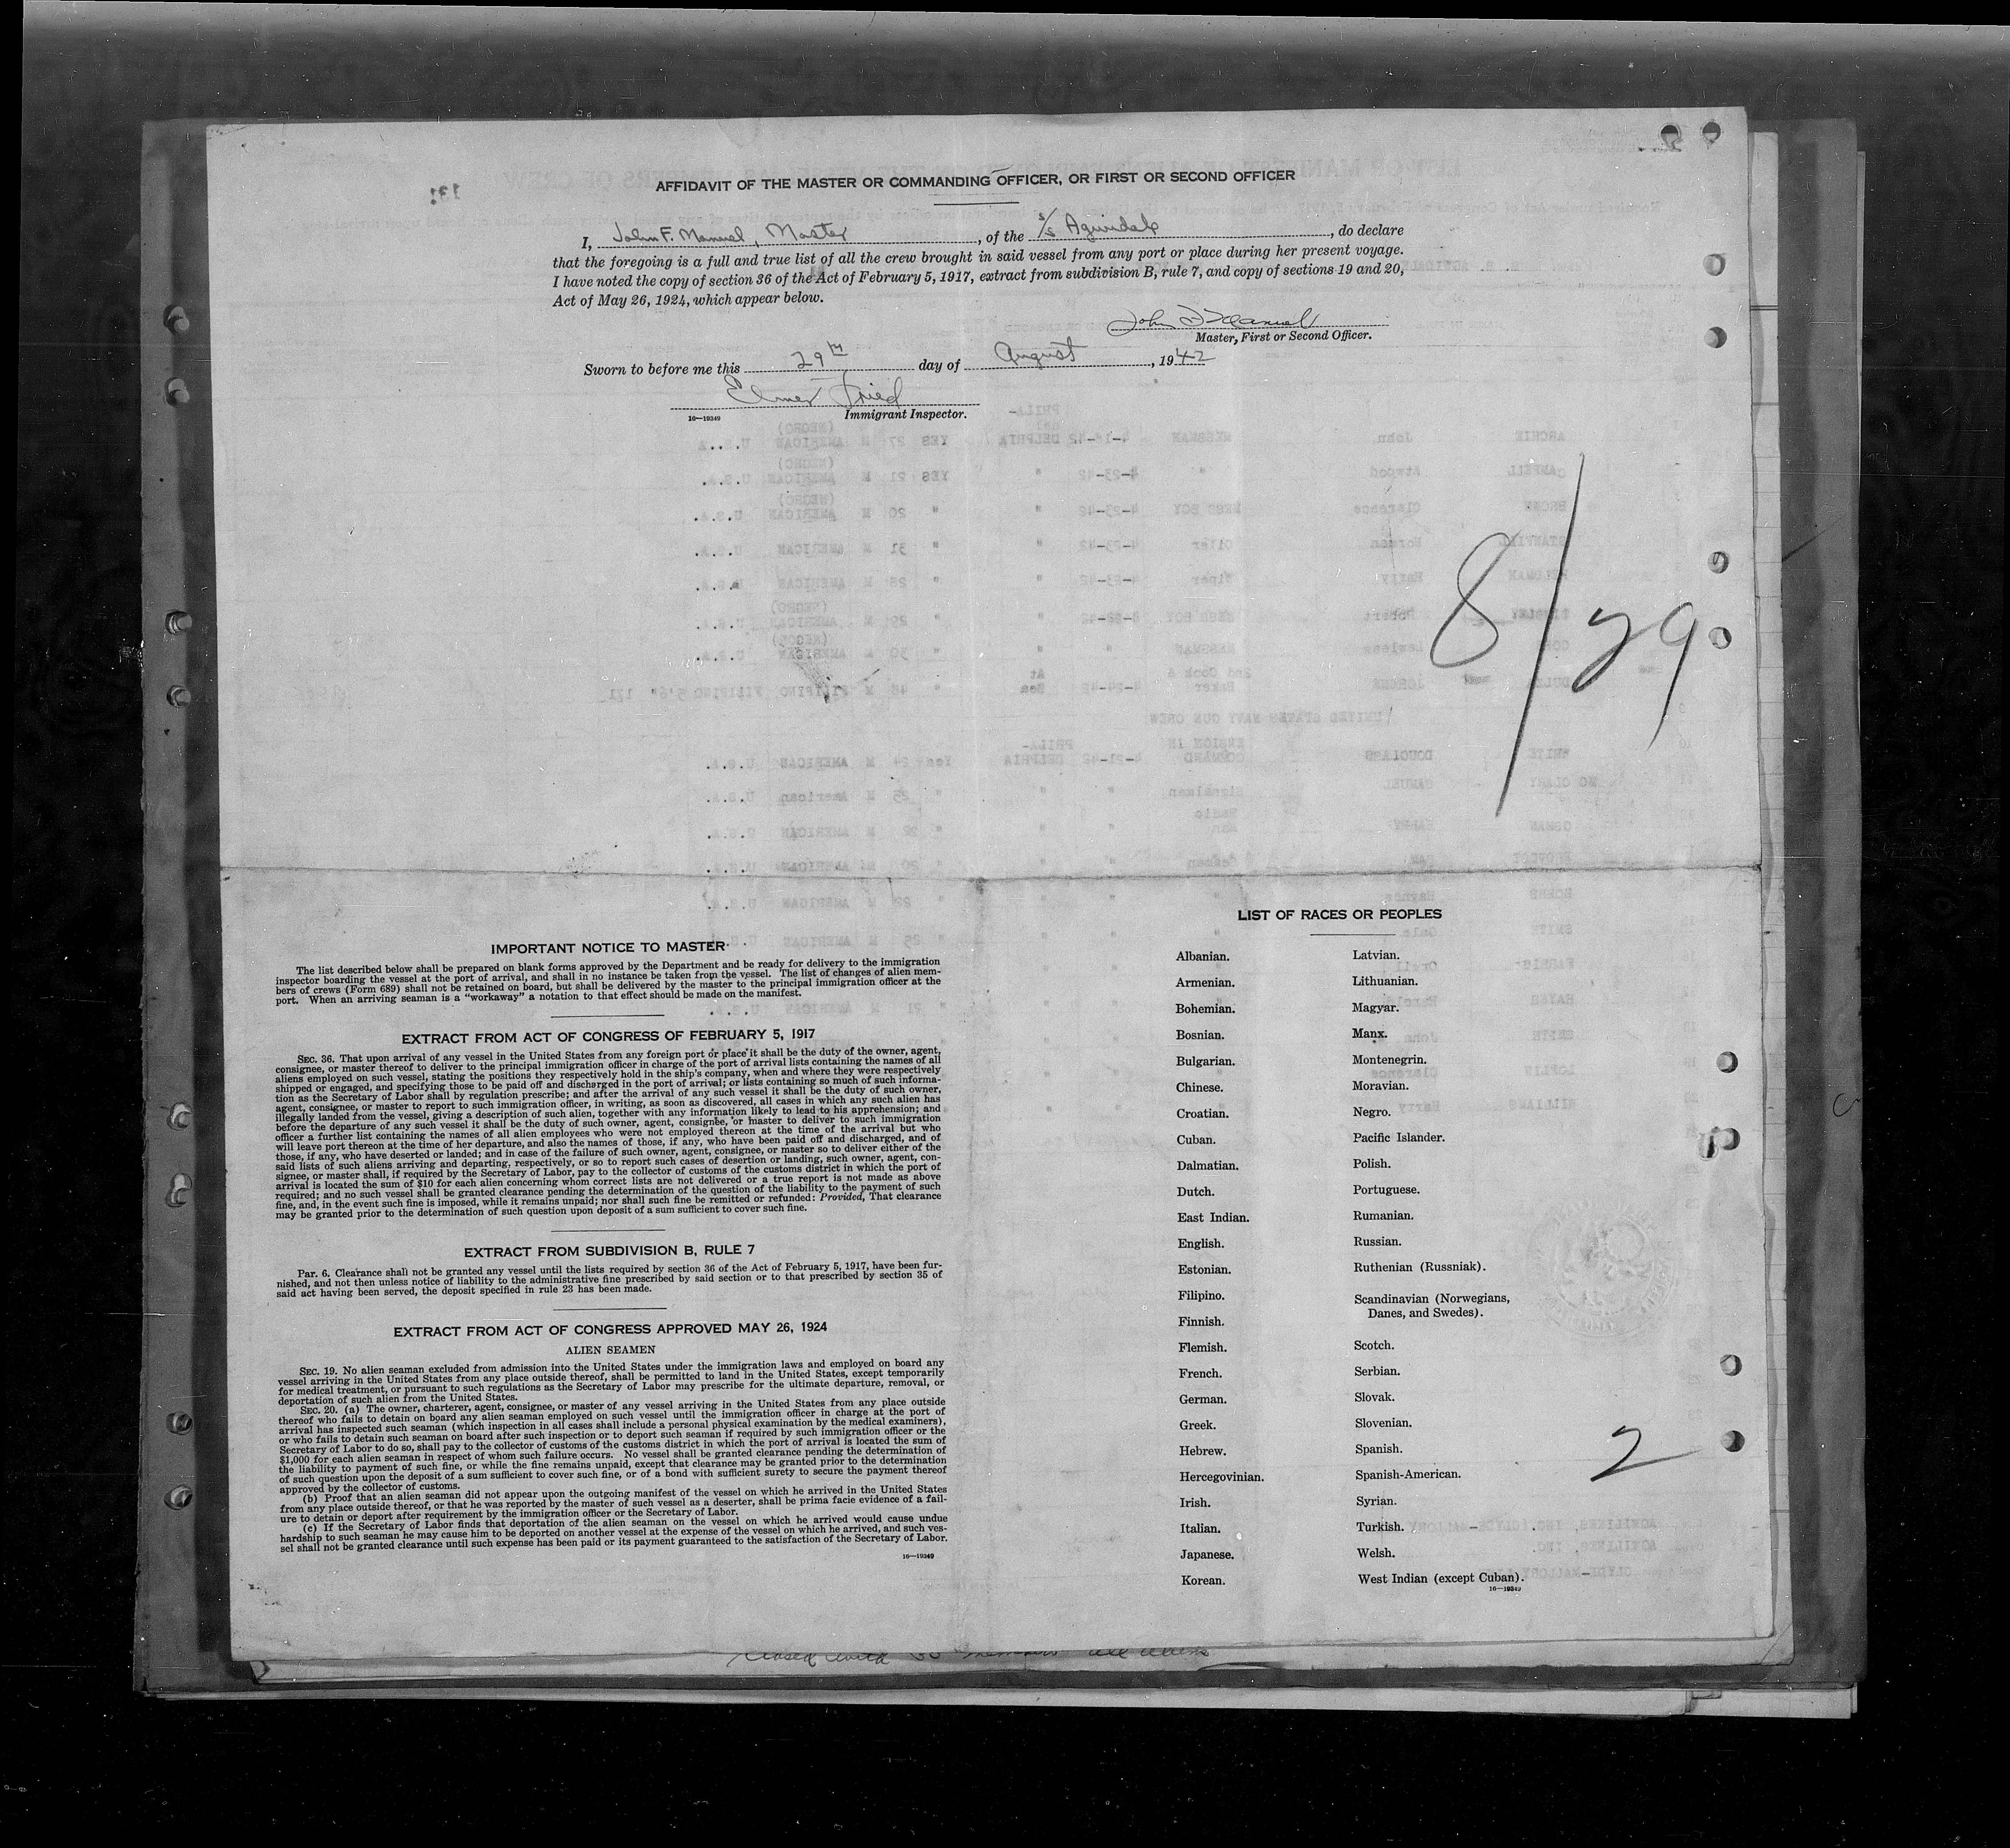 AFFIDAVIT OF THE MASTER OR COMMANDING OFFICER, OR FIRST OR SECOND OFFICER
I, John F. Manuel, Master, of the S/S Agwidale, do declare
that the foregoing is a full and true list of all the crew brought in said vessel from any port or place during her present voyage.
I have noted the copy of section 36 of the Act of February 5, 1917, extract from subdivision B, rule 7, and copy of sections 19 and 20,
Act of May 26, 1924, which appear below.
John F Manuel
Master, First or Second Officer.
Sworn to before me this 29th day of August, 1942
Elmer Fried
16—19349 Immigrant Inspector.
8/29
IMPORTANT NOTICE TO MASTER
The list described below shall be prepared on blank forms approved by the Department and be ready for delivery to the immigration
inspector boarding the vessel at the port of arrival, and shall in no instance be taken from the vessel. The list of changes of alien mem-
bers of crews (Form 689) shall not be retained on board, but shall be delivered by the master to the principal immigration officer at the
port. When an arriving seaman is a "workaway" a notation to that effect should be made on the manifest.
EXTRACT FROM ACT OF CONGRESS OF FEBRUARY 5, 1917
SEC. 36. That upon arrival of any vessel in the United States from any foreign port or place it shall be the duty of the owner, agent,
consignee, or master thereof to deliver to the principal immigration officer in charge of the port of arrival lists containing the names of all
aliens employed on such vessel, stating the positions they respectively hold in the ship's company, when and where they were respectively
shipped or engaged, and specifying those to be paid off and discharged in the port of arrival; or lists containing so much of such informa-
tion as the Secretary of Labor shall by regulation prescribe; and after the arrival of any such vessel it shall be the duty of such owner,
agent, consignee, or master to report to such immigration officer, in writing, as soon as discovered, all cases in which any such alien has
illegally landed from the vessel, giving a description of such alien, together with any information likely to lead to his apprehension; and
before the departure of any such vessel it shall be the duty of such owner, agent, consignee, or master to deliver to such immigration
officer a further list containing the names of all alien employees who were not employed thereon at the time of the arrival but who
will leave port thereon at the time of her departure, and also the names of those, if any, who have been paid off and discharged, and of
those, if any, who have deserted or landed; and in case of the failure of such owner, agent, consignee, or master so to deliver either of the
said lists of such aliens arriving and departing, respectively, or so to report such cases of desertion or landing, such owner, agent, con-
signee, or master shall, if required by the Secretary of Labor, pay to the collector of customs of the customs district in which the port of
arrival is located the sum of $10 for each alien concerning whom correct lists are not delivered or a true report is not made as above
required; and no such vessel shall be granted clearance pending the determination of the question of the liability to the payment of such
fine, and, in the event such fine is imposed, while it remains unpaid; nor shall such fine be remitted or refunded: Provided, That clearance
may be granted prior to the determination of such question upon deposit of a sum sufficient to cover such fine.
EXTRACT FROM SUBDIVISION B, RULE 7
Par. 6. Clearance shall not be granted any vessel until the lists required by section 36 of the Act of February 5, 1917, have been fur-
nished, and not then unless notice of liability to the administrative fine prescribed by said section or to that prescribed by section 35 of
said act having been served, the deposit specified in rule 23 has been made.
EXTRACT FROM ACT OF CONGRESS APPROVED MAY 26, 1924
ALIEN SEAMEN
SEC. 19. No alien seaman excluded from admission into the United States under the immigration laws and employed on board any
vessel arriving in the United States from any place outside thereof, shall be permitted to land in the United States, except temporarily
for medical treatment, or pursuant to such regulations as the Secretary of Labor may prescribe for the ultimate departure, removal, or
deportation of such alien from the United States.
SEC. 20. (a) The owner, charterer, agent, consignee, or master of any vessel arriving in the United States from any place outside
thereof who fails to detain on board any alien seaman employed on such vessel until the immigration officer in charge at the port of
arrival has inspected such seaman (which inspection in all cases shall include a personal physical examination by the medical examiners),
or who fails to detain such seaman on board after such inspection or to deport such seaman if required by such immigration officer or the
Secretary of Labor to do so, shall pay to the collector of customs of the customs district in which the port of arrival is located the sum of
$1,000 for each alien seaman in respect of whom such failure occurs. No vessel shall be granted clearance pending the determination of
the liability to payment of such fine, or while the fine remains unpaid, except that clearance may be granted prior to the determination
of such question upon the deposit of a sum sufficient to cover such fine, or of a bond with sufficient surety to secure the payment thereof
approved by the collector of customs.
(b) Proof that an alien seaman did not appear upon the outgoing manifest of the vessel on which he arrived in the United States
from any place outside thereof, or that he was reported by the master of such vessel as a deserter, shall be prima facie evidence of a fail-
ure to detain or deport after requirement by the immigration officer or the Secretary of Labor.
(c) If the Secretary of Labor finds that deportation of the alien seaman on the vessel on which he arrived would cause undue
hardship to such seaman he may cause him to be deported on another vessel at the expense of the vessel on which he arrived, and such ves-
sel shall not be granted clearance until such expense has been paid or its payment guaranteed to the satisfaction of the Secretary of Labor.
16—19349
LIST OF RACES OR PEOPLES
Albanian.
Armenian.
Bohemian.
Bosnian.
Bulgarian.
Chinese.
Croatian.
Cuban.
Dalmatian.
Dutch.
East Indian.
English.
Estonian.
Filipino.
Finnish.
Flemish.
French.
German.
Greek.
Hebrew.
Hercegovinian.
Irish.
Italian.
Japanese.
Korean.
Latvian.
Lithuanian.
Magyar.
Manx.
Montenegrin.
Moravian.
Negro.
Pacific Islander.
Polish.
Portuguese.
Rumanian.
Russian.
Ruthenian (Russniak).
Scandinavian (Norwegians,
Danes, and Swedes).
Scotch.
Serbian.
Slovak.
Slovenian.
Spanish.
Spanish-American.
Syrian.
Turkish.
Welsh.
West Indian (except Cuban).
16—19349
2